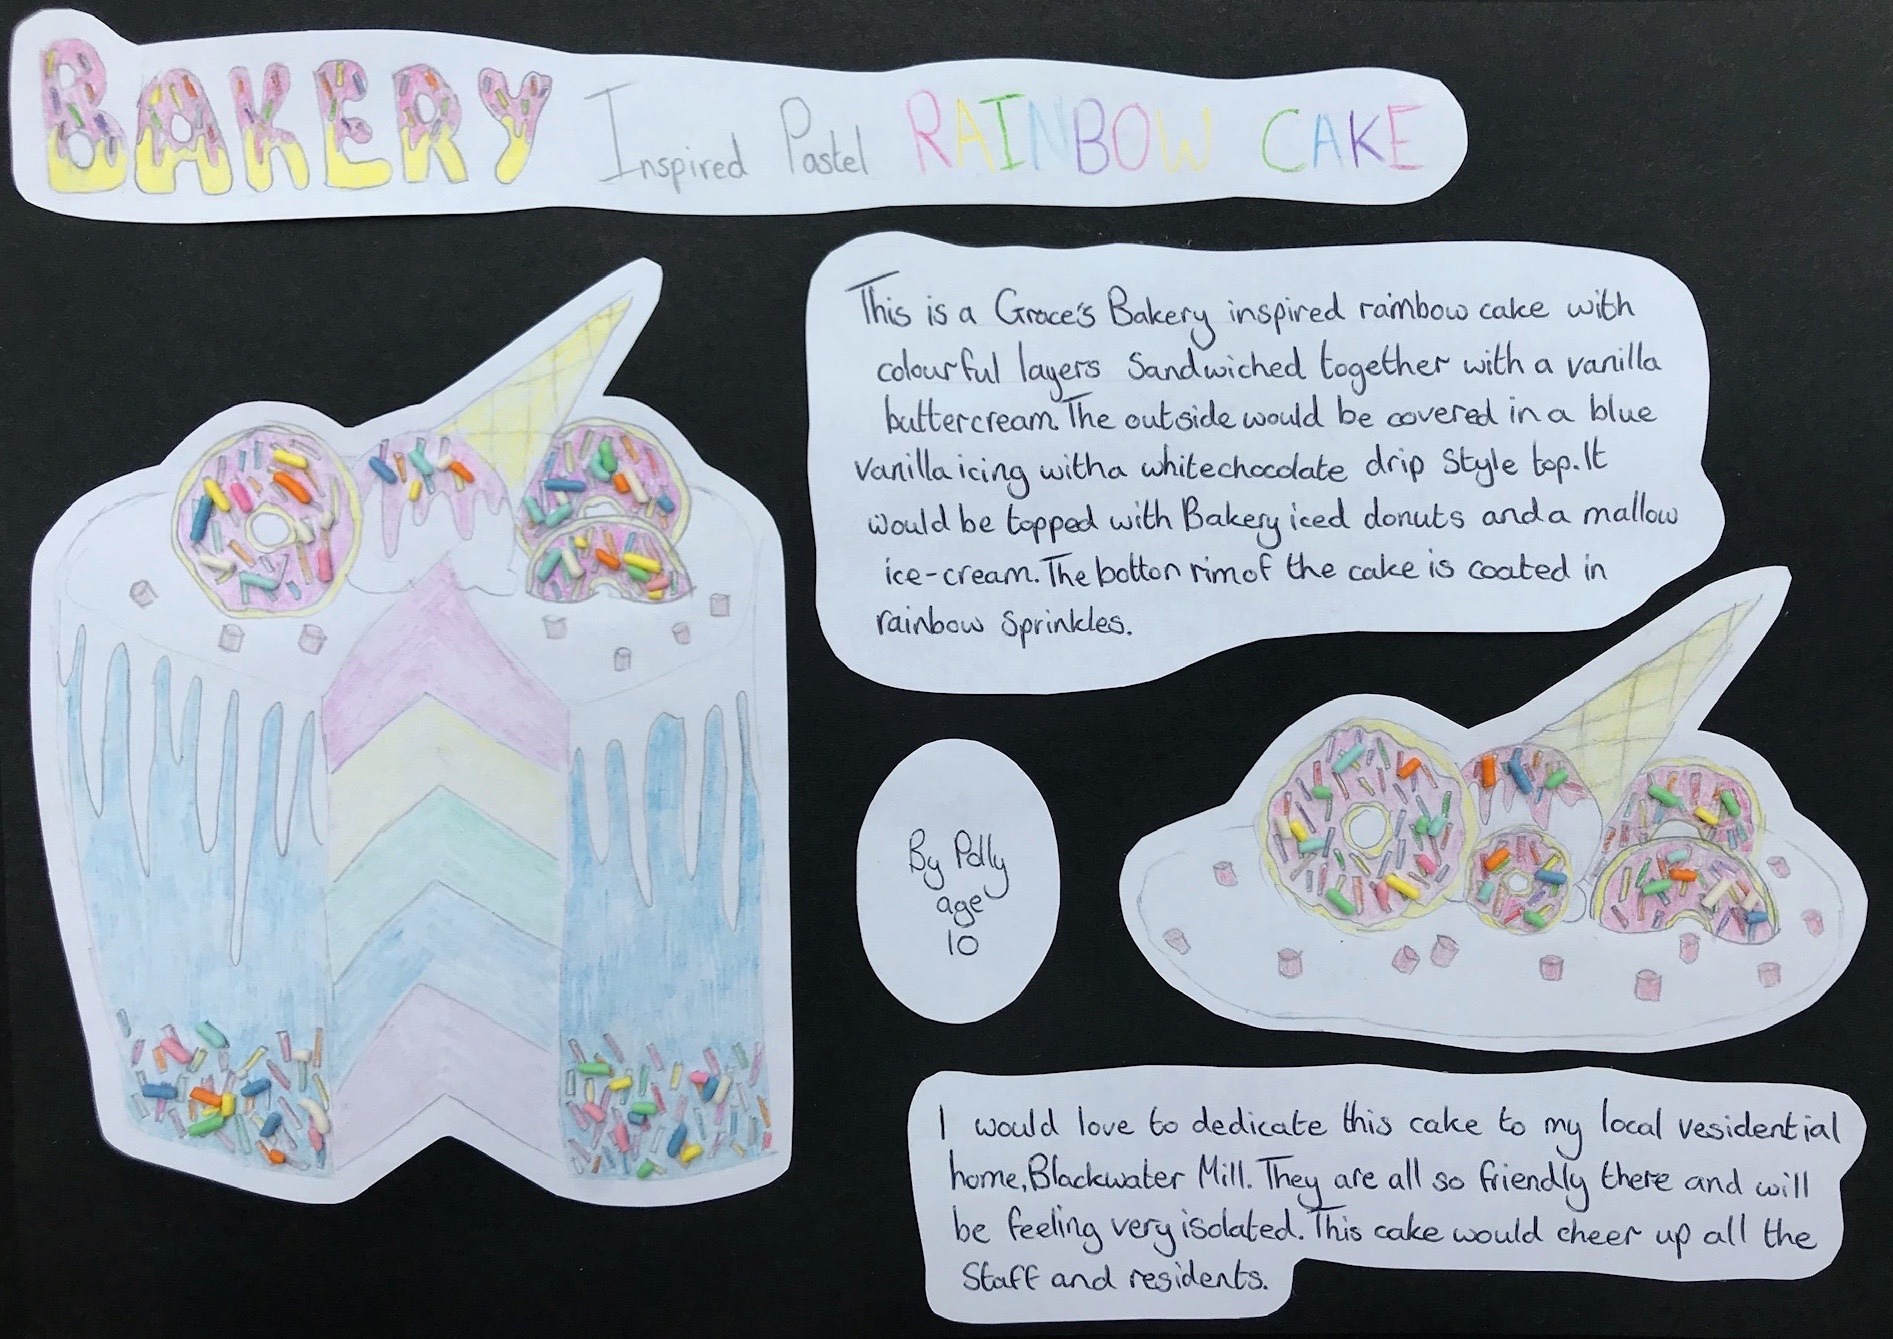 BAKERY Inspired Pastel RAINBOW CAKE
This is a Grace's Bakery inspired rainbow cake with
colourful layers Sandwiched together with a vanilla
buttercream. The outside would be covered in a blue
vanilla icing with a white chocolate drip style top. It
would be topped with Bakery iced donuts and a mallow
ice-cream. The botton rim of the cake is coated in
rainbow sprinkles.
By Polly
age
10
I would love to dedicate this cake to my local residential
home, Blackwater Mill. They are all so friendly there and will
be feeling very isolated. This cake would cheer up all the
Staff and residents.